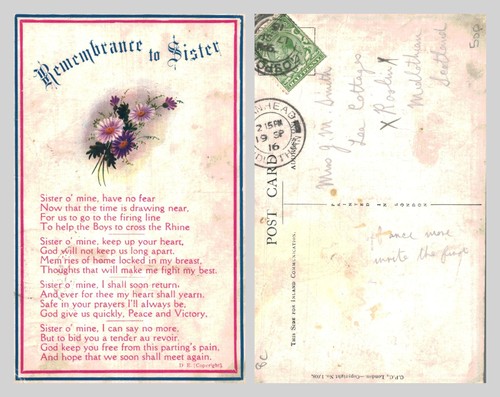 Remembrance to Sister
Sister o' mine, have no fear
Now that the time is drawing near,
For us to go to the firing line
To help the Boys to cross the Rhine
Sister o' mine, keep up your heart,
God will not keep us long apart.
Mem'ries of home locked in my breast,
Thoughts that will make me fight my best.
Sister o' mine, I shall soon return,
And ever for thee my heart shall yearn.
Safe in your prayers I'll always be,
God give us quickly, Peace and Victory.
Sister o' mine, I can say no more,
But to bid you a tender au revoir.
God keep you free from this parting's pain,
And hope that we soon shall meet again.
D. E. [Copyright].
POST CARD
ADDRESS
THIS SIDE FOR INLAND COMMUNICATION.
PRINTED IN LONDON
G.P.C., London—Copyright No.
2 15 PM
19 SP
16
Miss J M Smith
Lee Cottage
X Roslin X
Midlothian
Scotland
once more
write the first